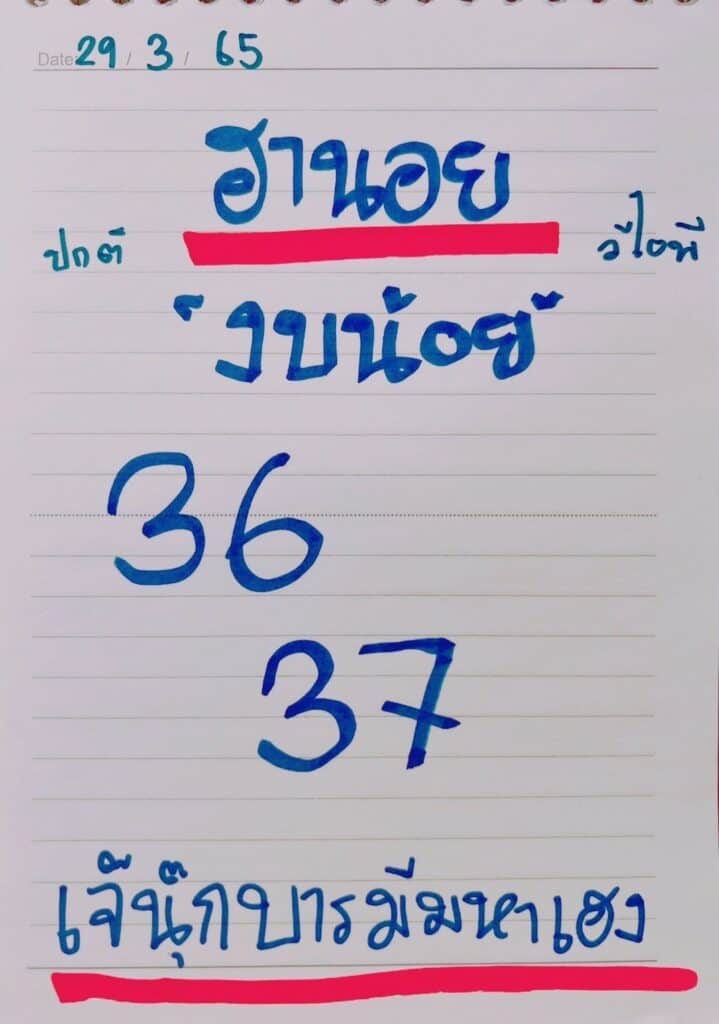 Date 29 / 3 / 65
ฮานอย
ปกติ วีไอพี
"งบน้อย"
36
37
เจ๊นุ๊กบารมีมหาเฮง